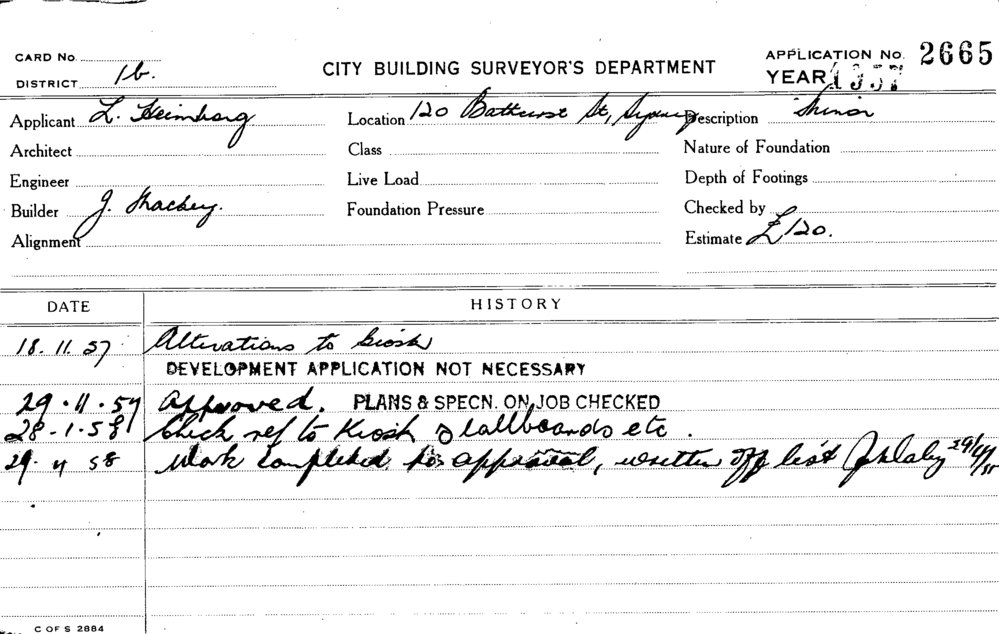 CARD No.
DISTRICT 1b.
CITY BUILDING SURVEYOR'S DEPARTMENT
APPLICATION No. 2665
YEAR 1957
Applicant L. Heimberg
Location 120 Bathurst St, Sydney
Description Minor
Architect
Class
Nature of Foundation
Engineer
Live Load
Depth of Footings
Builder J.
Foundation Pressure
Checked by
Alignment
Estimate £120.
DATE
HISTORY
18.11.57 Alterations to Kiosk
DEVELOPMENT APPLICATION NOT NECESSARY
29.11.57 Approved. PLANS & SPECN. ON JOB CHECKED
28-1-58 Check ref to Kiosk stallboards etc.
29.4.58 Work completed to approval, written off list 29/4/58
C OF S 2884